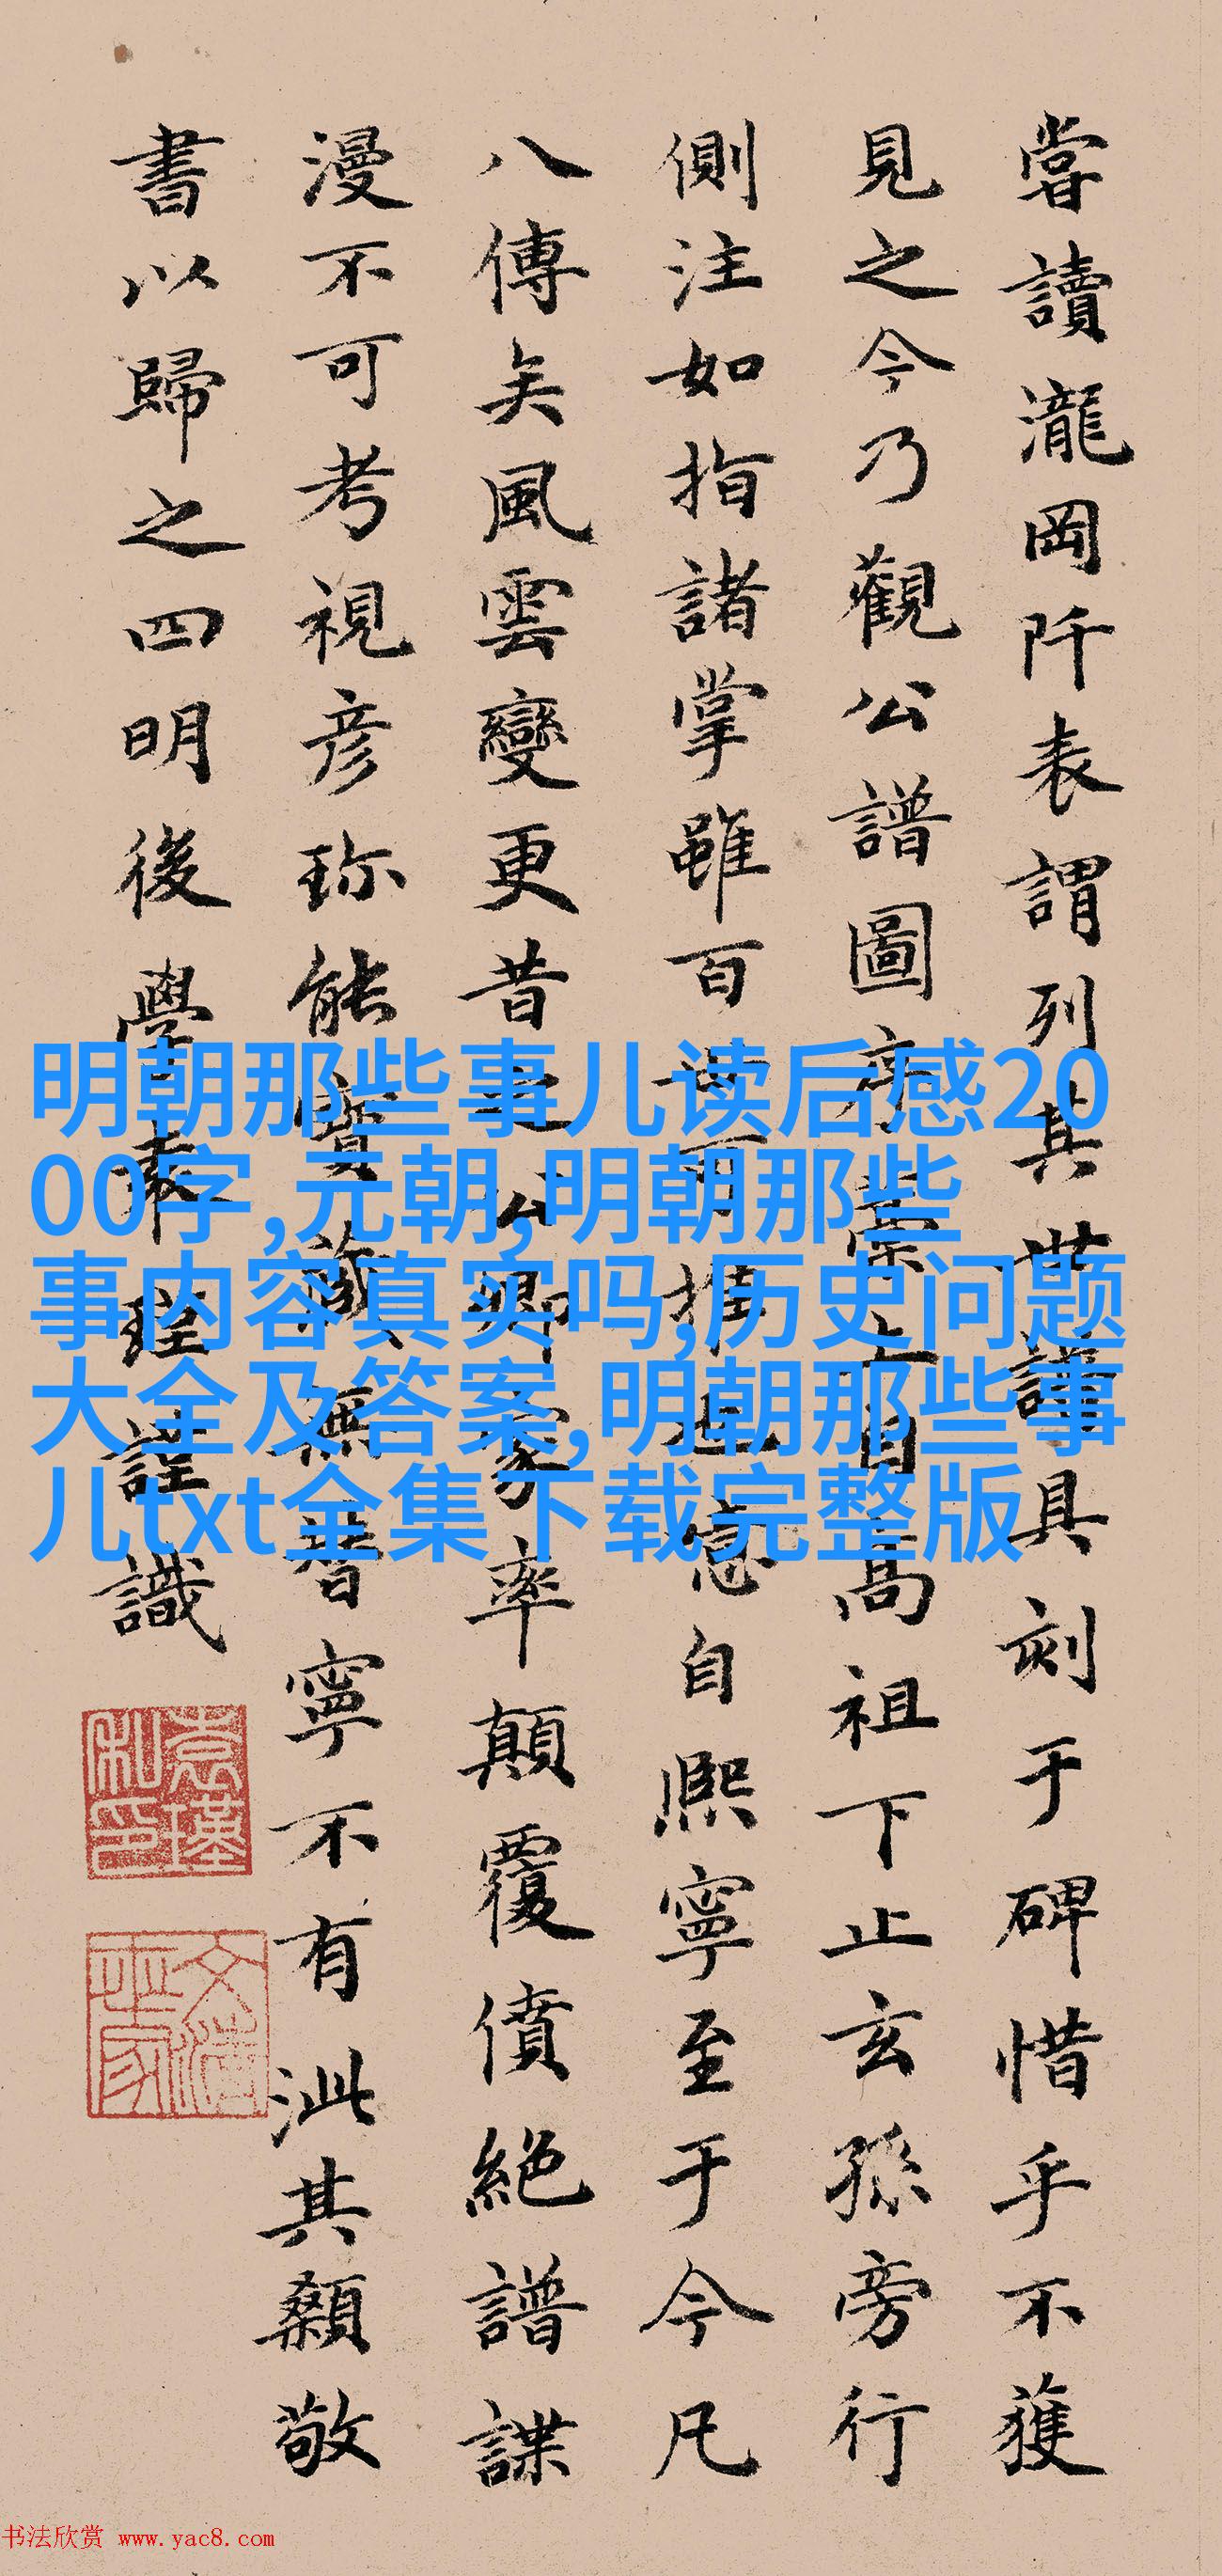 嘗讀瀧岡阡表謂列其世譜具刻于碑惜乎不獲
見之今乃觀公譜圖自高祖下止玄孫旁行
側注如指諸掌雖百世可推也自熙寧至于今凡
八傳矣風雲變更昔之公卿家率顛覆僨絕譜諜
漫不可考視彥珎能寶藏無替寧不有泚其顙敬
書以歸之四明後學袁瑾謹識
袁瑾私印
文清世家
明朝那些事儿读后感20
00字,元朝,明朝那些
事内容真实吗,历史问题
大全及答案,明朝那些事
儿txt全集下载完整版
书法欣赏 www.yac8.com